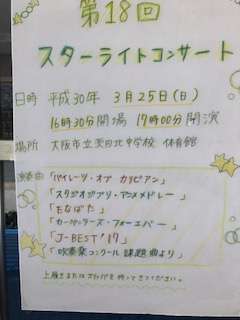 第18回
スターライトコンサート
日時 平成30年 3月25日(日)
16時30分開場 17時00分開演
場所 大阪市立天田北中学校 体育館
演奏曲「パイレーツ・オブ カリビアン」
「スタジオジブリ・アニメメドレー」
「たなばた」
「カーペンターズ・フォーエバー」
「J-BEST'17」
「吹奏楽コンクール課題曲より」
上履きまたはスリッパを持ってきてください。